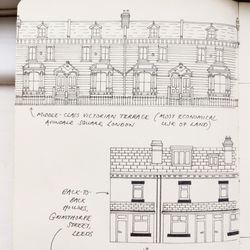 MIDDLE-CLASS VICTORIAN TERRACE (MOST ECONOMICAL
AVONDALE SQUARE LONDON USE OF LAND)
BACK-TO-
BACK
HOUSES,
GRIMTHORPE
STREET,
LEEDS